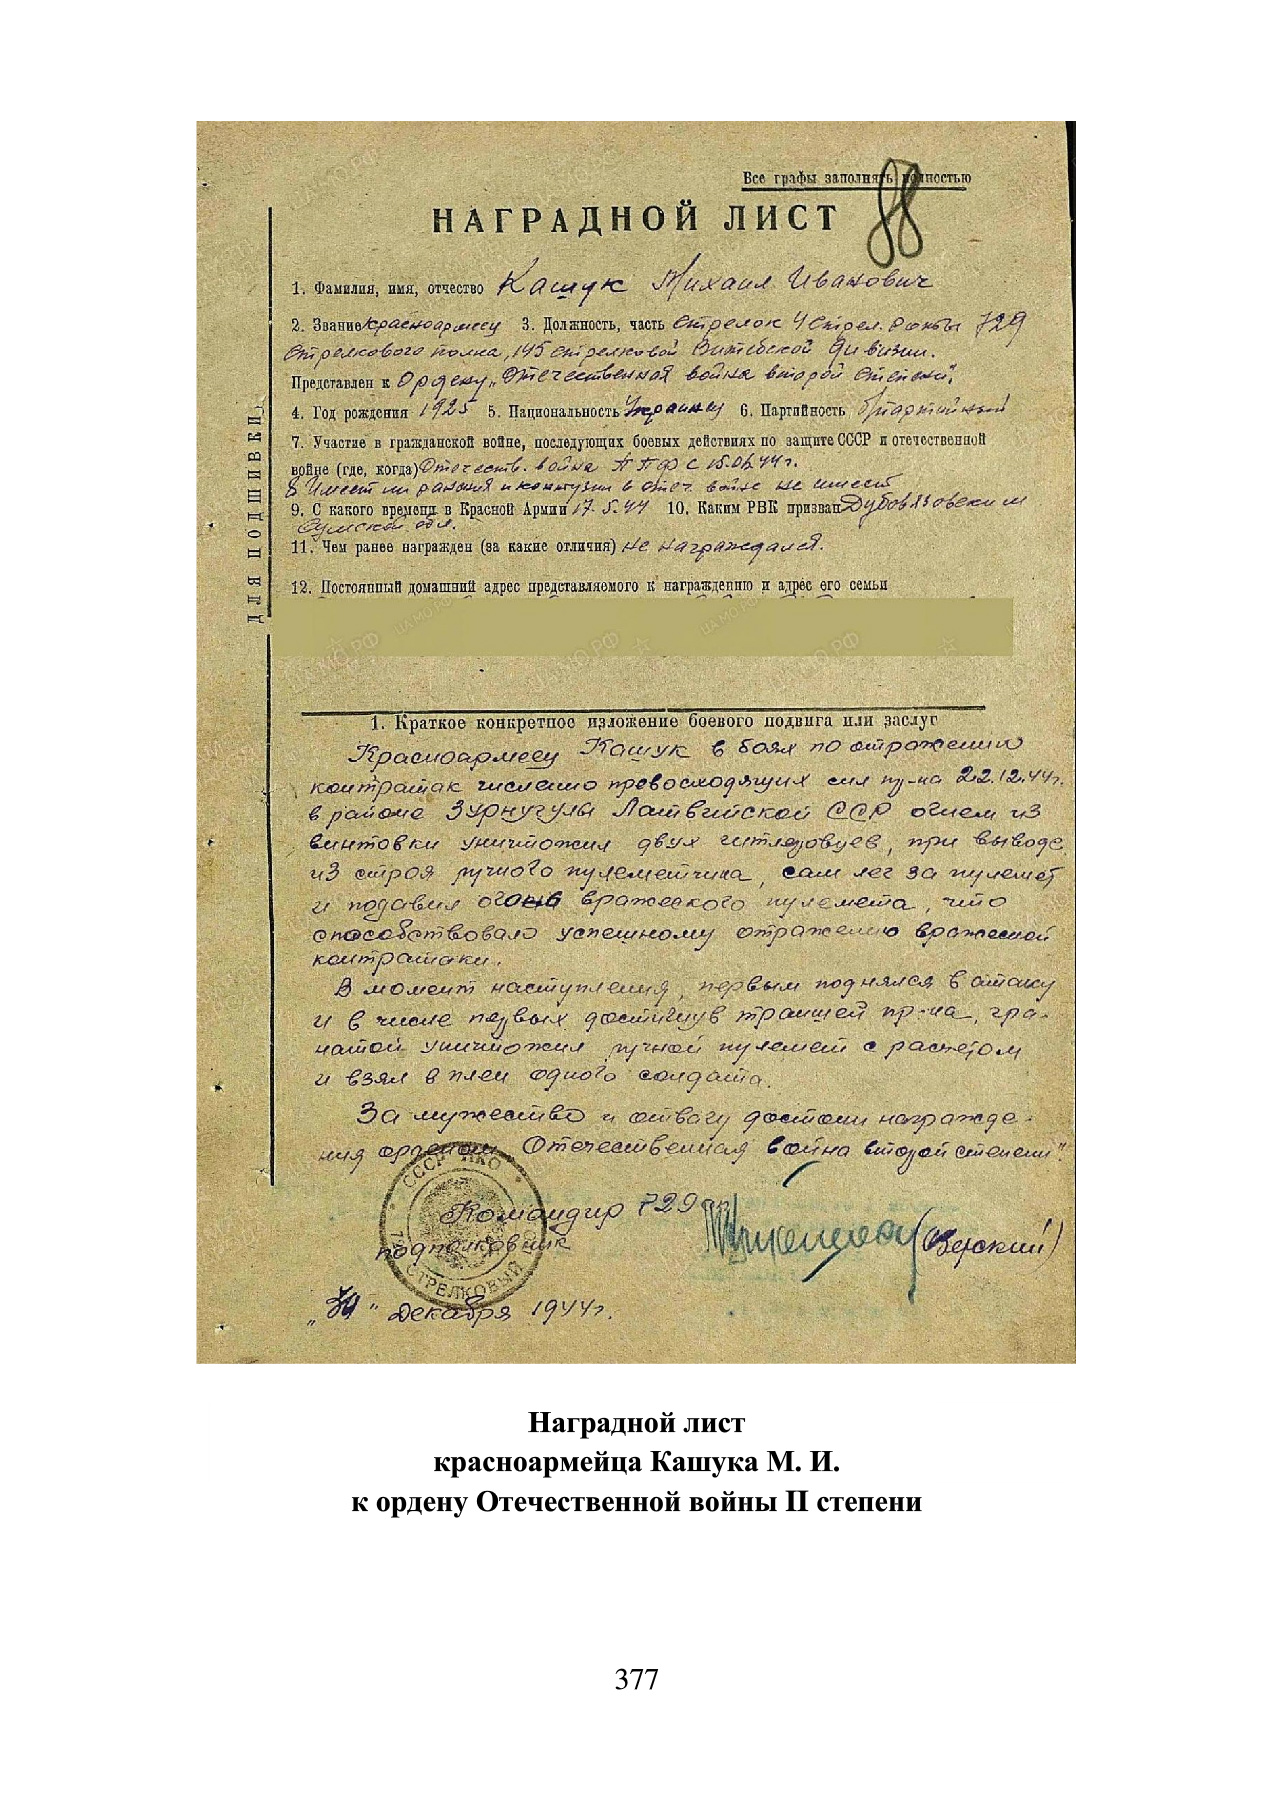 Все графы заполнять полностью
88
НАГРАДНОЙ ЛИСТ
1. Фамилия, имя, отчество Кашук Михаил Иванович
2. Звание красноармеец 3. Должность, часть стрелок 4 стрел. роты 729
стрелкового полка, 145 стрелковой Витебской дивизии.
Представлен к Ордену „Отечественная война второй степени".
4. Год рождения 1925 5. Национальность Украинец 6. Партийность б/партийный
7. Участие в гражданской войне, последующих боевых действиях по защите СССР и отечественной
войне (где, когда) Отечеств. война 1 ПФ с
8. Имеет ли ранения и контузии в отеч. войне не имеет
9. С какого времени в Красной Армии 17.5.44 10. Каким РВК призван Дубовязовским
Сумской обл.
11. Чем ранее награжден (за какие отличия) не награждался.
12. Постоянный домашний адрес представляемого к награждению и адрес его семьи
ДЛЯ ПОДШИВКИ
1. Краткое конкретное изложение боевого подвига или заслуг
Красноармеец Кашук в боях по отражению
контратак численно превосходящих сил пр-ка 22.12.44г.
в районе Зурнугулы Латвийской ССР огнем из
винтовки уничтожил двух гитлеровцев, при выводе
из строя ручного пулеметчика, сам лег за пулемет
и подавил огонь вражеского пулемета, что
способствовало успешному отражению вражеской
контратаки.
В момент наступления, первым поднялся в атаку
и в числе первых достигнув траншей пр-ка, гра-
натой уничтожил ручной пулемет с расчетом
и взял в плен одного солдата.
За мужество и отвагу достоин награжде-
ния орденом „Отечественная война второй степени".
Командир 729 сп
подполковник (Зерский)
СССР НКО
СТРЕЛКОВЫЙ
декабря 1944г.
ЦА МО РФ
Наградной лист
красноармейца Кашука М. И.
к ордену Отечественной войны II степени
377